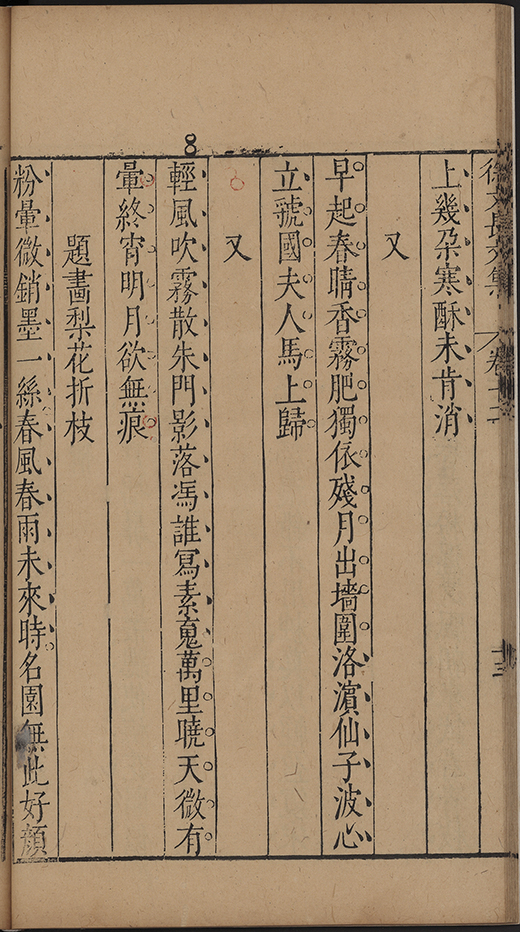 徐文長文集 卷十二 十三
上幾朶寒酥未肯消
又
早起春晴香霧肥獨依殘月出墻圍洛濵仙子波心
立虢國夫人馬上歸
又
輕風吹霧散朱門影落馮誰冩素䰟萬里曉天微有
暈終宵明月欲無痕
題畵梨花折枝
粉暈微銷墨一絲春風春雨未來時名園無此好顔
8